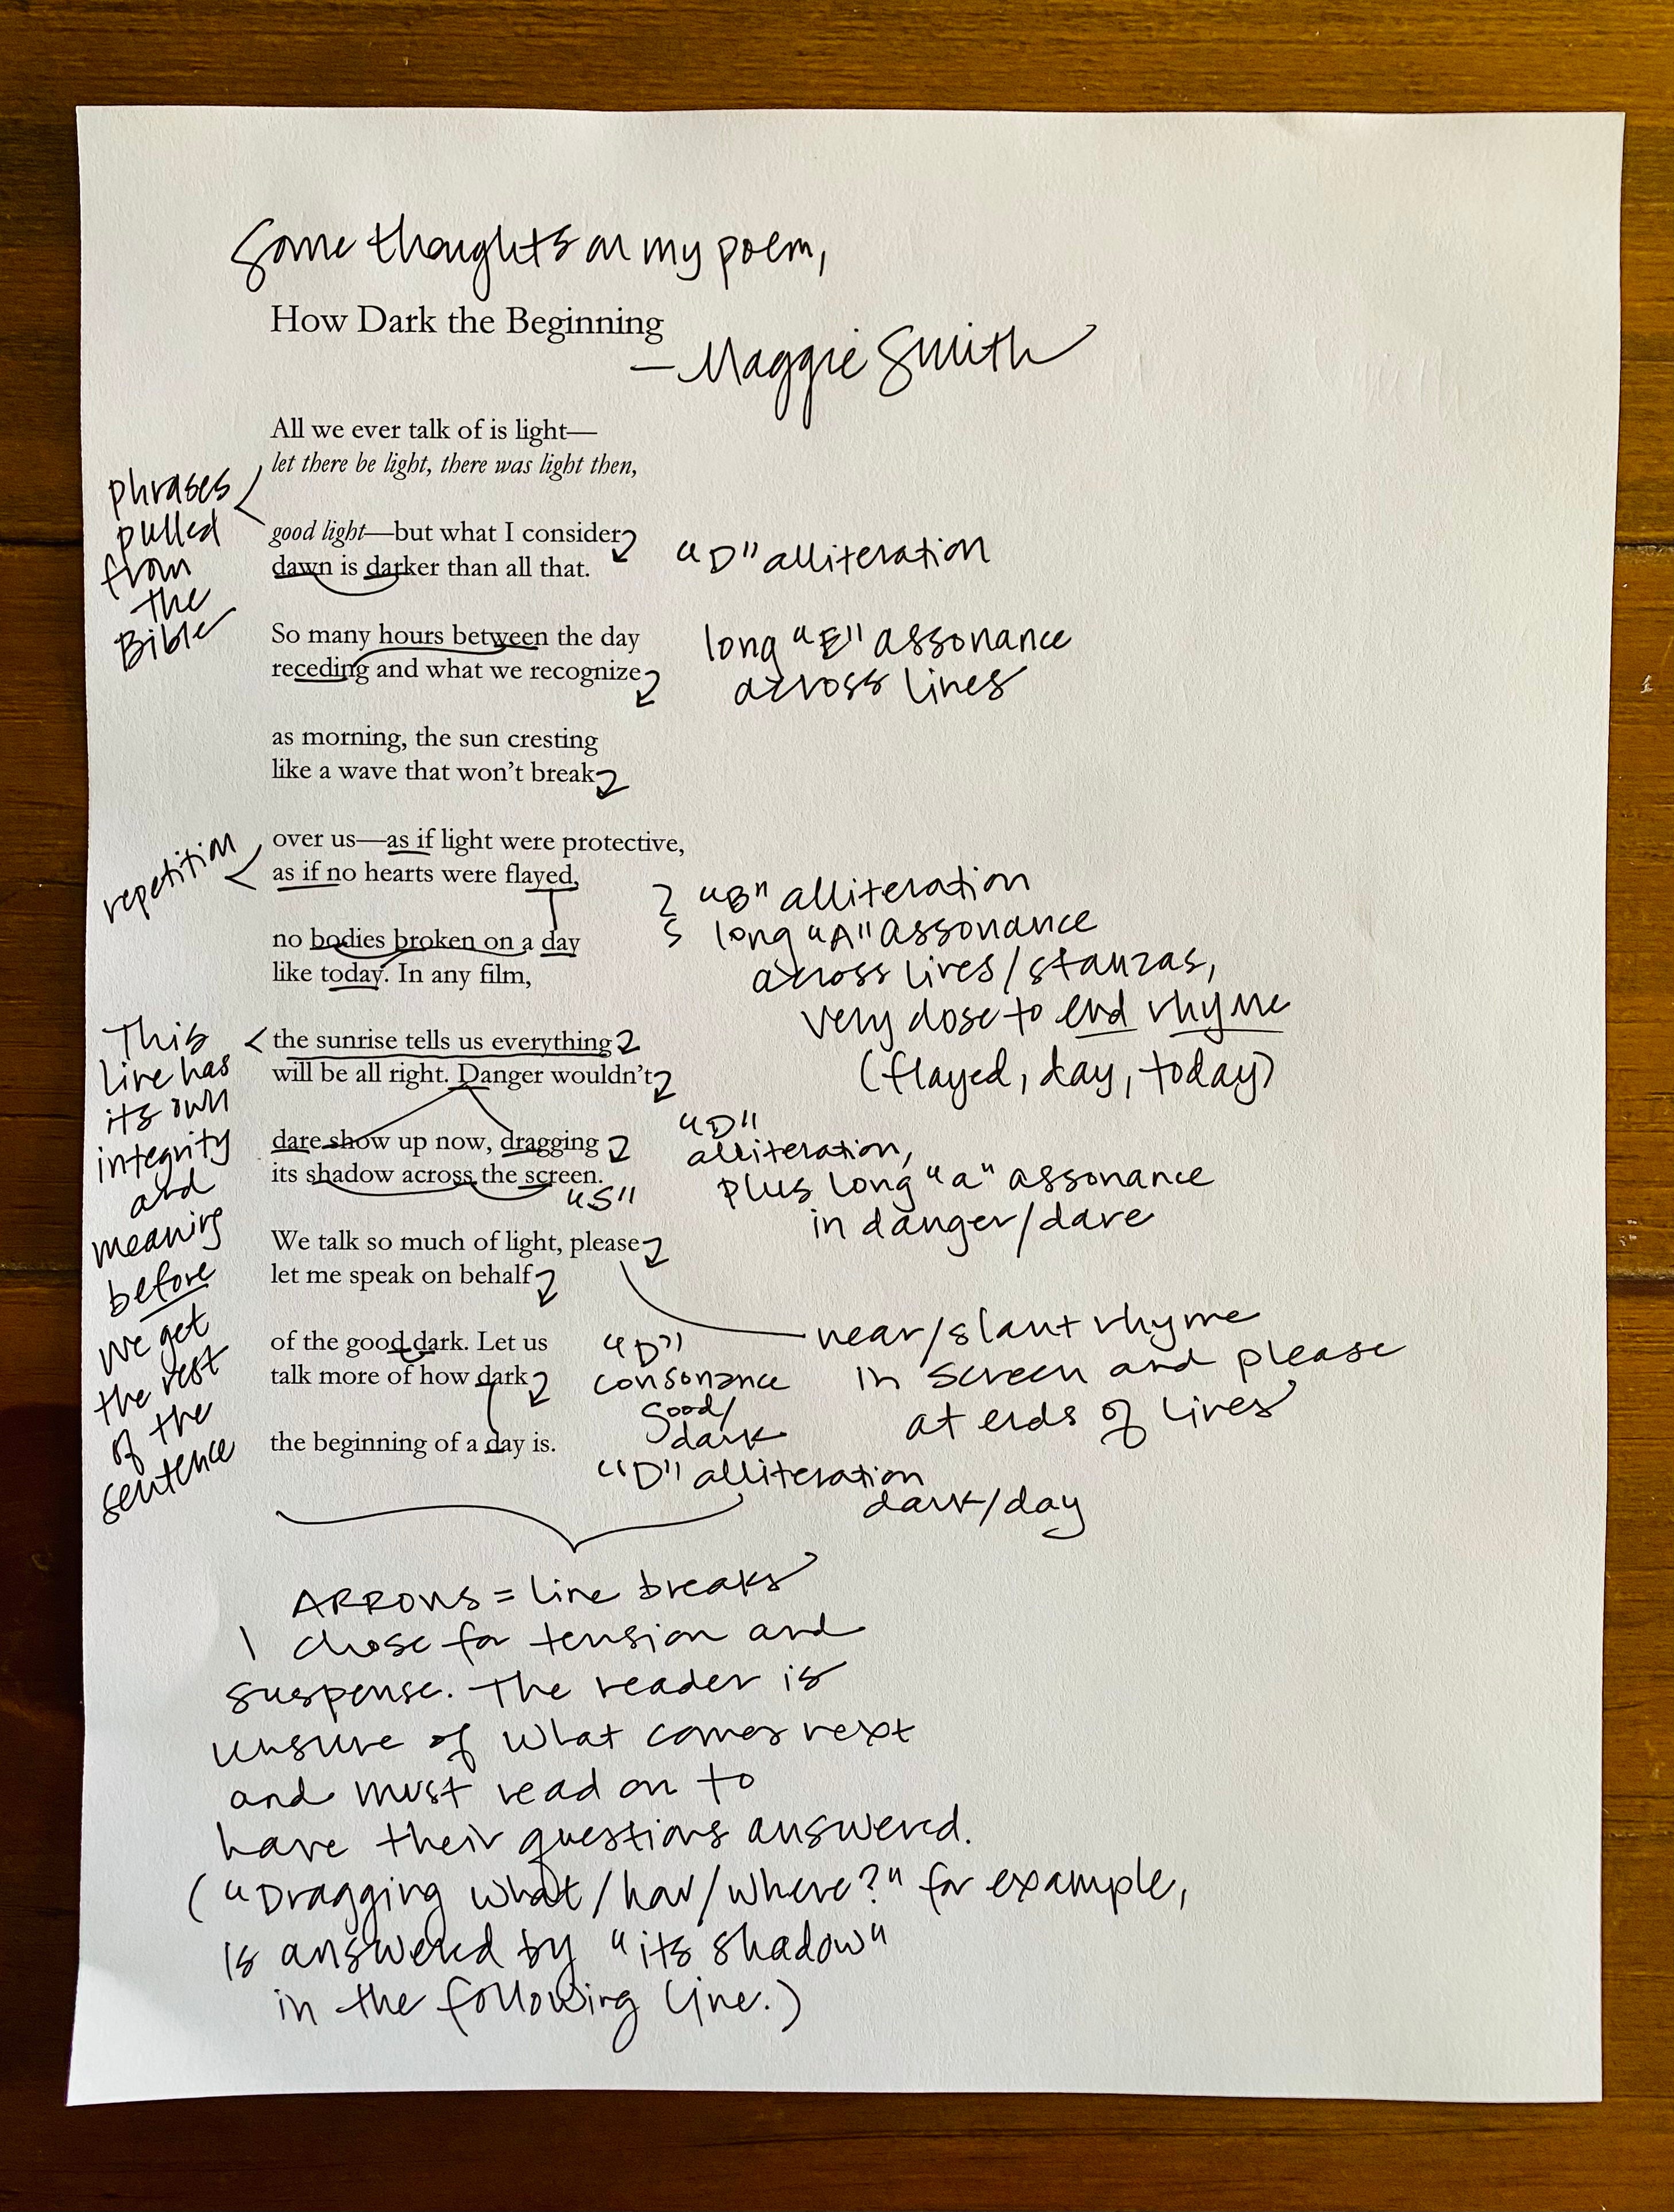 Some thoughts on my poem,
How Dark the Beginning
—Maggie Smith
All we ever talk of is light—
let there be light, there was light then,
good light—but what I consider
dawn is darker than all that.
So many hours between the day
receding and what we recognize
as morning, the sun cresting
like a wave that won't break
over us—as if light were protective,
as if no hearts were flayed,
no bodies broken on a day
like today. In any film,
the sunrise tells us everything
will be all right. Danger wouldn't
dare show up now, dragging
its shadow across the screen.
We talk so much of light, please
let me speak on behalf
of the good dark. Let us
talk more of how dark
the beginning of a day is.
phrases
pulled
from
the
Bible
repetition
This
line has
its own
integrity
and
meaning
before
we get
the rest
of the
sentence
"D" alliteration
long "E" assonance
across lines
"B" alliteration
long "A" assonance
across lines/stanzas,
very close to end rhyme
(flayed, day, today)
"D"
alliteration,
plus long "a" assonance
in danger/dare
"S"
near/slant rhyme
in screen and please
at ends of lines
"D"
consonance
good/
dark
"D" alliteration
dark/day
ARROWS = line breaks
I chose for tension and
suspense. The reader is
unsure of what comes next
and must read on to
have their questions answered.
("Dragging what/how/where?" for example,
is answered by "its shadow"
in the following line.)